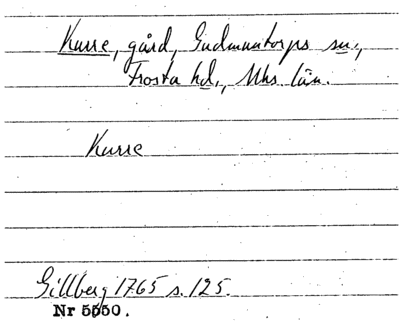 Kurre, gård, Gudmuntorps sn.,
Frosta hd., Mhs län.
Kurre
Gillberg 1765 s. 125.
Nr 5550.